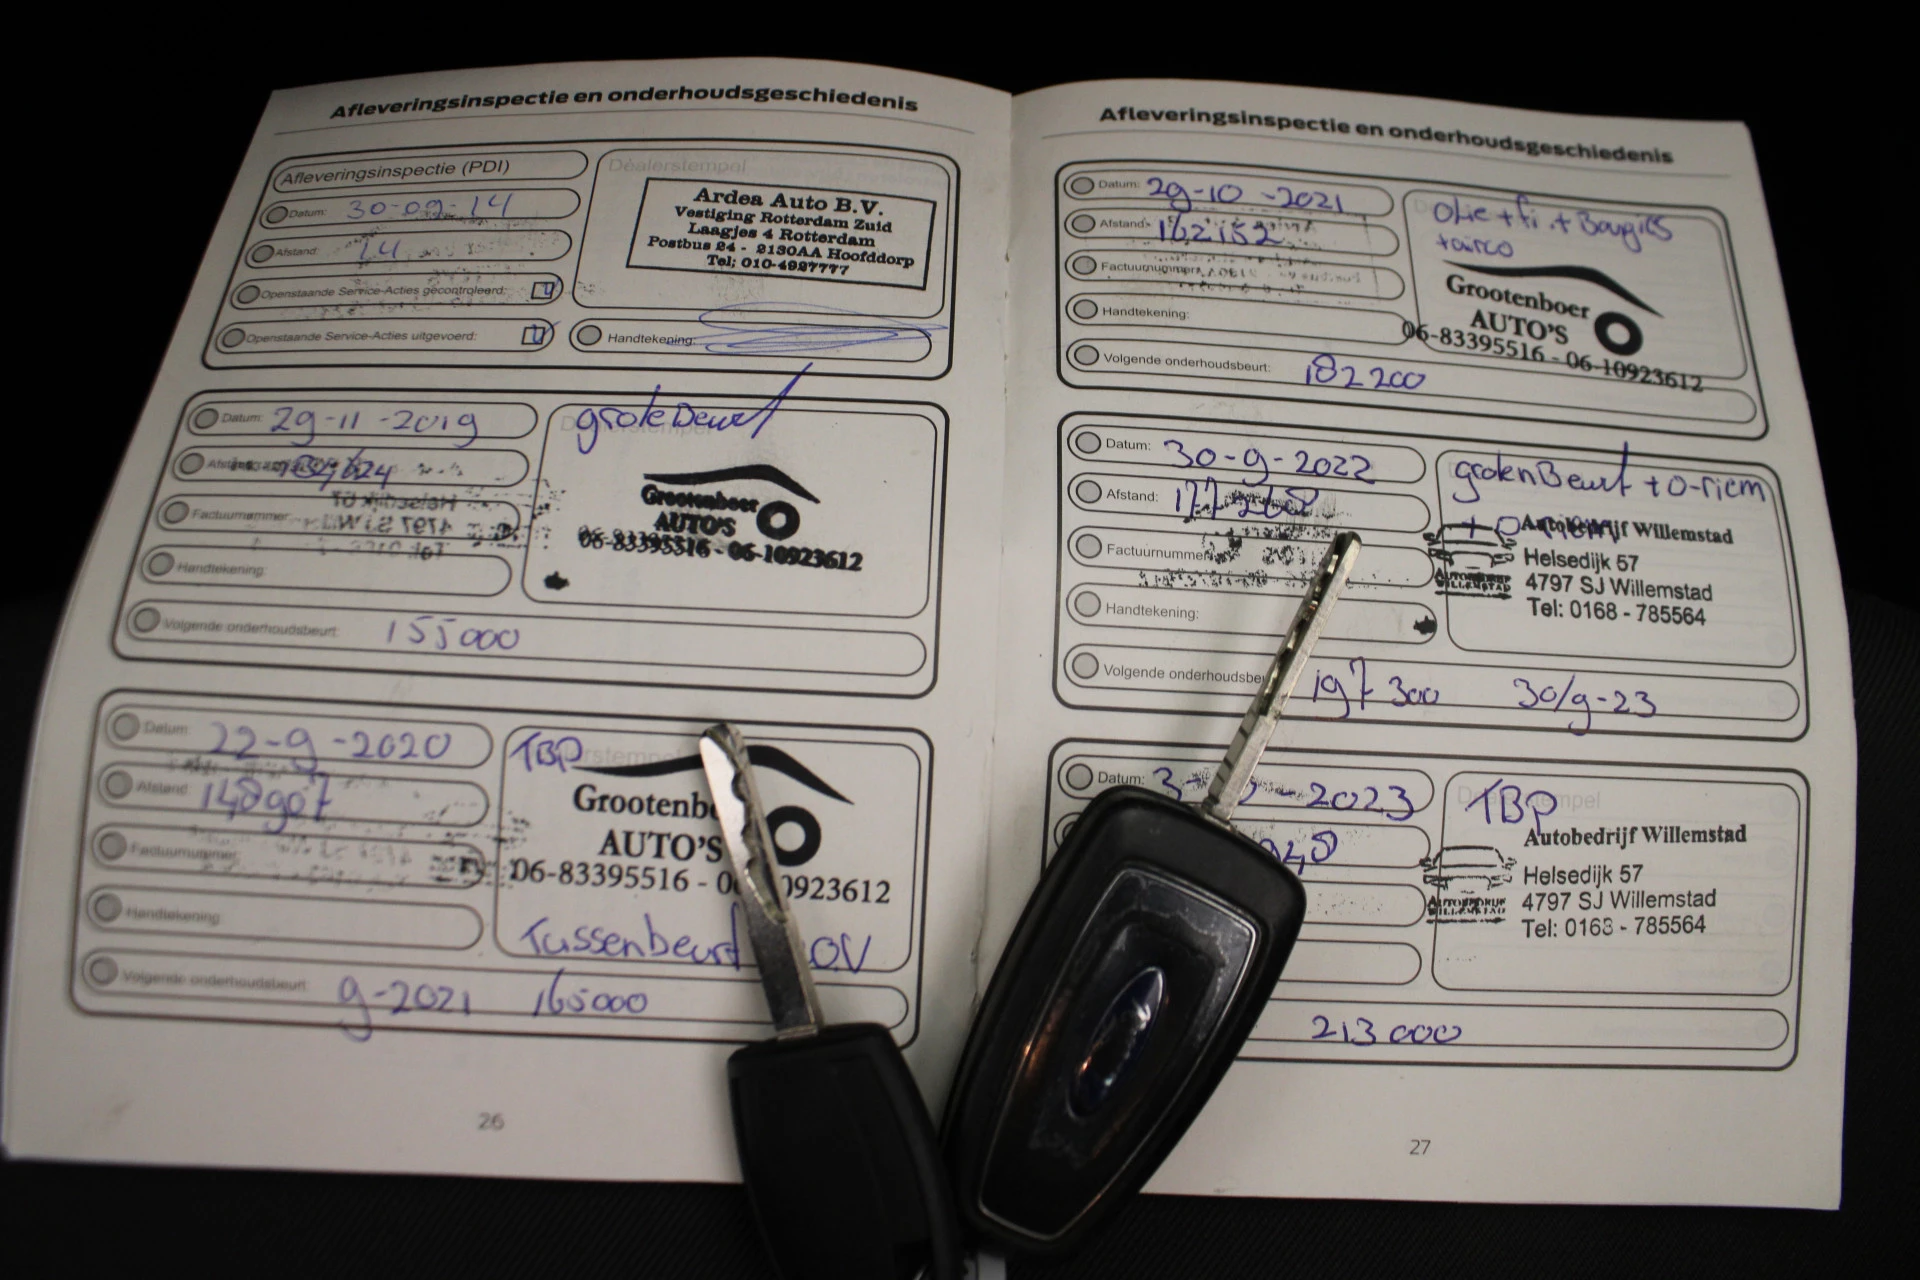 Afleveringsinspectie en onderhoudsgeschiedenis
Afleveringsinspectie (PDI)
Datum: 30-09-14
Afstand: 14
Openstaande Service-Acties gecontroleerd:
Openstaande Service-Acties uitgevoerd:
Dealerstempel
Ardea Auto B.V.
Vestiging Rotterdam Zuid
Laagjes 4 Rotterdam
Postbus 24 - 2130AA Hoofddorp
Tel; 010-4927777
Handtekening:
Datum: 29-11-2019
Factuurnummer:
Handtekening:
Volgende onderhoudsbeurt: 155000
grote Beurt
Grootenboer
AUTO'S
06-83395516 - 06-10923612
Datum: 22-9-2020
Afstand: 148907
Factuurnummer:
Handtekening:
Volgende onderhoudsbeurt: 9-2021 165000
TBP
AUTO'S
06-83395516 - 0 0923612
Tussenbeurt O.V
26
Afleveringsinspectie en onderhoudsgeschiedenis
Datum: 29-10-2021
Afstand: 162152
Factuurnummer:
Handtekening:
Volgende onderhoudsbeurt: 182200
olie + fi. + Bougies
+airco
Grootenboer
AUTO'S
06-83395516 - 06-10923612
Datum: 30-9-2022
Afstand: 177268
Factuurnummer
Handtekening:
Volgende onderhoudsbeu 197300 30/9-23
groten Beurt + D-riem
Autobedrijf Willemstad
Helsedijk 57
4797 SJ Willemstad
Tel: 0168 - 785564
AUTOBEDRIJF
WILLEMSTAD
Datum: -2023
213000
TBP
Autobedrijf Willemstad
Helsedijk 57
4797 SJ Willemstad
Tel: 0168 - 785564
AUTOBEDRIJF
WILLEMSTAD
27